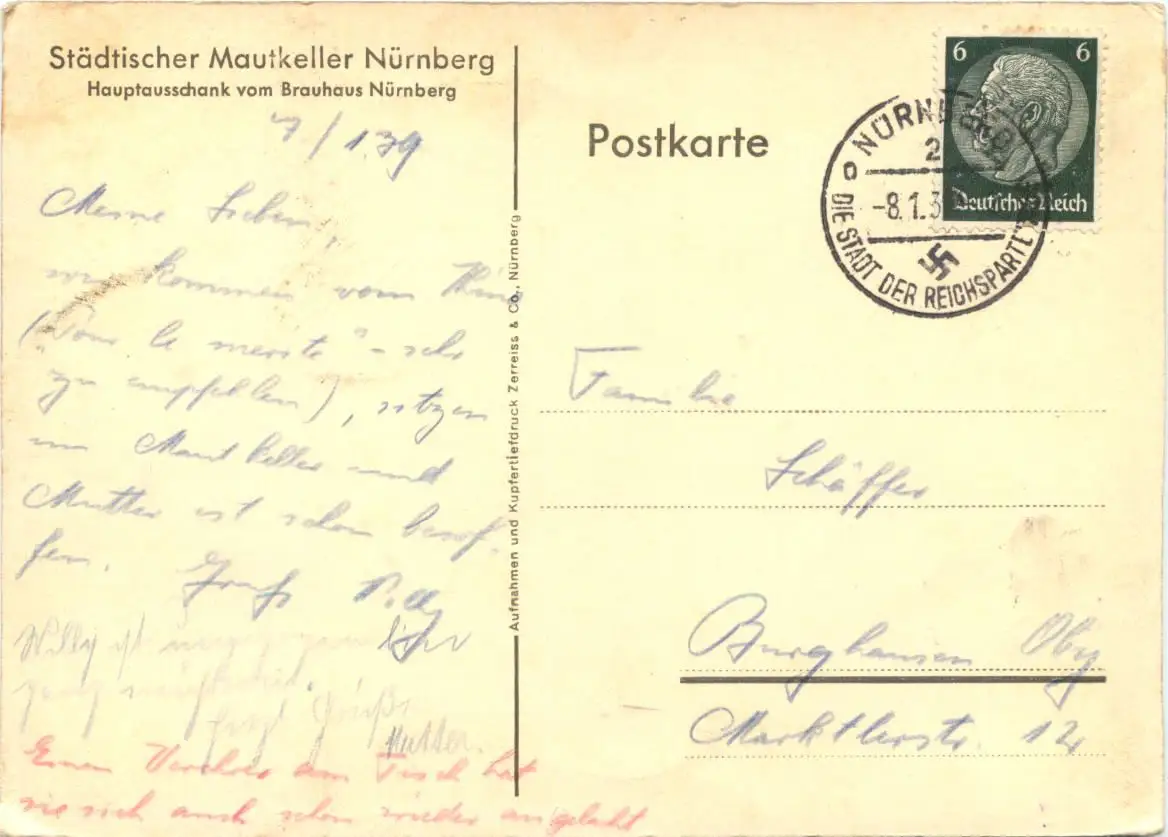 Städtischer Mautkeller Nürnberg
Hauptausschank vom Brauhaus Nürnberg
7/1.39
Meine Lieben,
wir kommen vom Kino
("Tour le merite" - sehr
zu empfehlen), sitzen
im Mautkeller und
Mutter ist schon besof-
fen. Gruß Willy
Willy ist
herzl. Grüße
Mutter.
Einen Verehrer am Tisch hat
sie sich auch schon wieder angelacht
Aufnahmen und Kupfertiefdruck Zerreiss & Co., Nürnberg
Postkarte
6 6
Deutsches Reich
NÜRNBERG
2
-8.1.3
DIE STADT DER REICHSPARTEITAGE
Familie
Schäffer
Burghausen Oby
Marktlerstr. 12